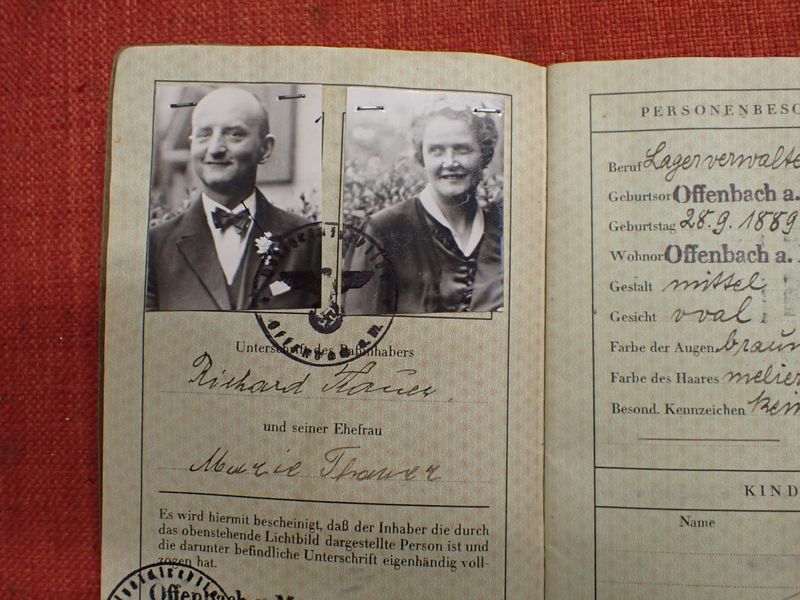 Unterschrift des Paßinhabers
Richard Thauer.
und seiner Ehefrau
Marie Thauer
Es wird hiermit bescheinigt, daß der Inhaber die durch
das obenstehende Lichtbild dargestellte Person ist und
die darunter befindliche Unterschrift eigenhändig voll-
zogen hat.
Offenbach a. M
PERSONENBESC
Beruf Lagerverwalte
Geburtsor Offenbach a.
Geburtstag 28.9.1889
Wohnor Offenbach a.
Gestalt mittel
Gesicht oval
Farbe der Augen braun
Farbe des Haares melier
Besond. Kennzeichen kein
KIND
Name